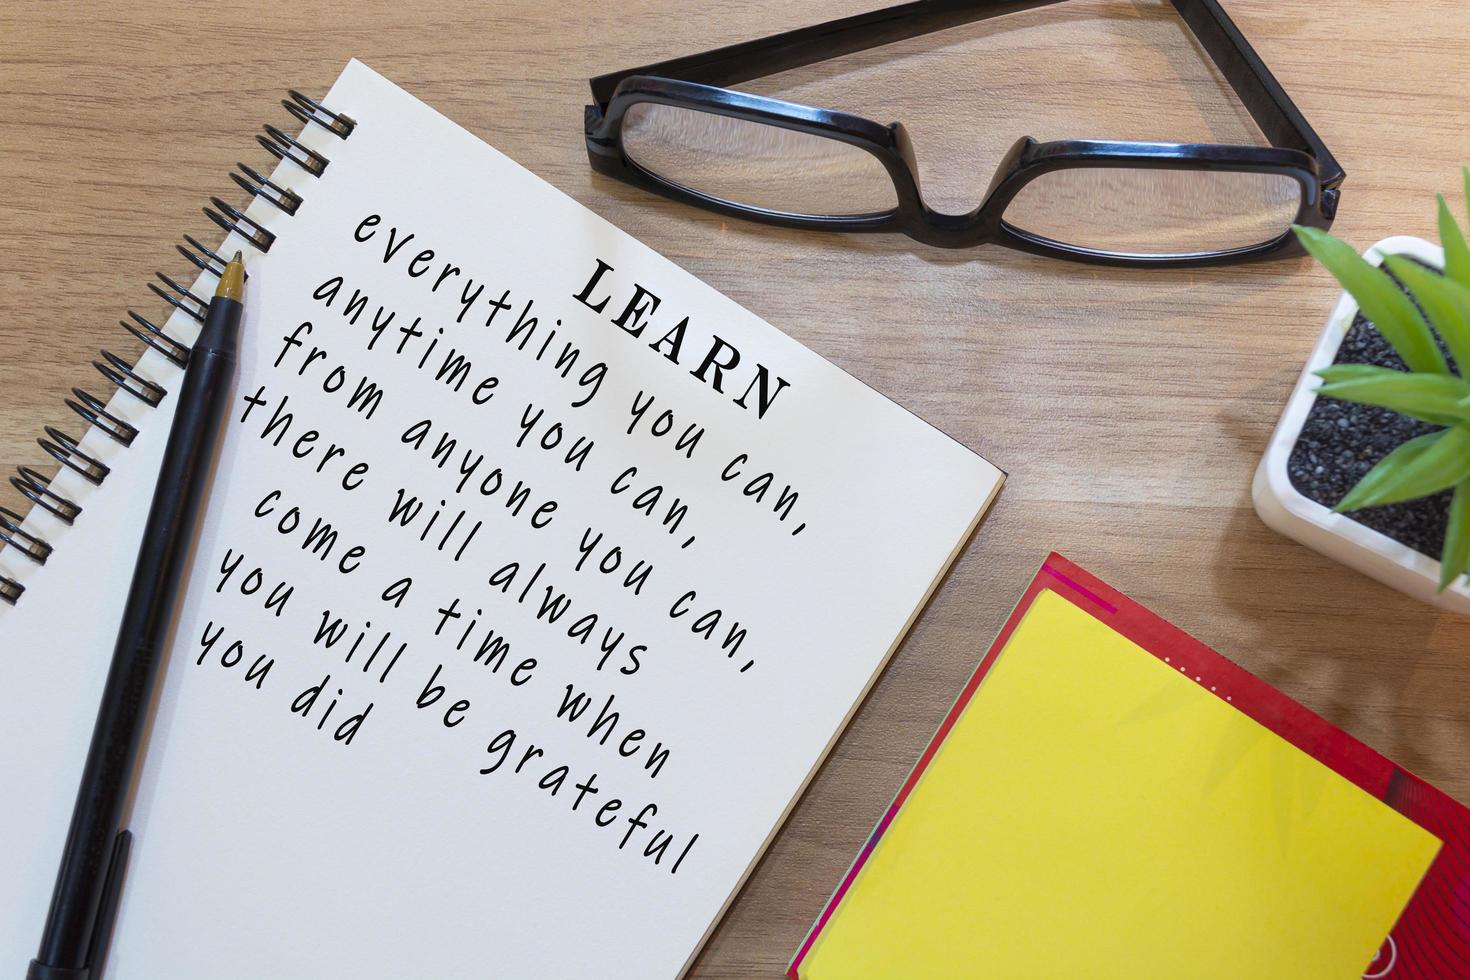 LEARN
everything you can,
anytime you can,
from anyone you can,
there will always
come a time when
you will be grateful
you did